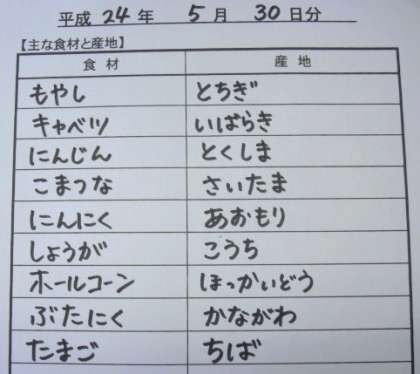 平成 24 年 5 月 30 日分
【主な食材と産地】
食材 産地
もやし とちぎ
キャベツ いばらき
にんじん とくしま
こまつな さいたま
にんにく あおもり
しょうが こうち
ホールコーン ほっかいどう
ぶたにく かながわ
たまご ちば